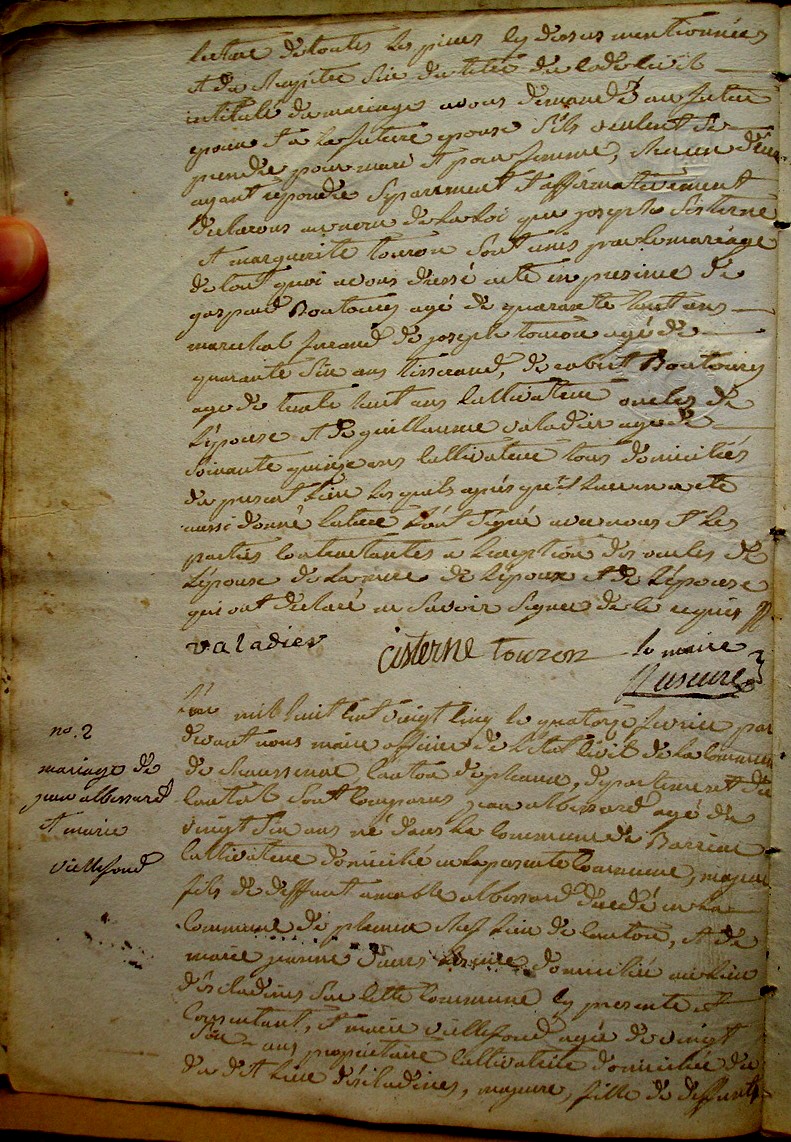 lecture de toutes les pieces cy dessus mentionnées
et du chapitre six du titre du code civil
intitulé du mariage, avons demandé au futur
epoux et a la future epouse s'ils veulent se
prendre pour mari et pour femme, chacun d'eux
ayant repondu séparement et affirmativement
declarons au nom de la loi que joseph Cisterne
et marguerite touron sont unis par le mariage
de tout quoi avons dressé acte en presence de
gaspard Boutoury agé de quarante huit ans
marechal feraud de joseph touron agé de
quarante six ans tisserand, de robert Boutoury
agé de trente huit ans cultivateur oncles de
l'épouse et de guillaume valadier agé de
soixante quinze ans cultivateur tous domiciliés
du present lieu lesquels après qu'il leur en a eté
aussi donné lecture l'ont signé avec nous et les
parties contractantes a l'exception des oncles de
l'épouse de la mere de l'époux et de l'épouse
qui ont declaré ne savoir signer de ce requis
valadier cisterne touron le maire
no. 2
mariage de
jean albessard
et marie
vieillefond
L'an mil huit cent vingt cinq le quatorze fevrier par
devant nous maire officier de l'etat civil de la commune
de chaussenac, canton de pleaux, departement du
cantal sont comparus jean albessard agé de
vingt six ans né dans la commune de Barriac
cultivateur domicilié en la presente commune, majeur
fils de deffunt amable albessard décédé en la
commune de pleaux chef lieu de canton, et de
marie jeanne domiciliée au lieu
d'escladines sur cette commune cy presente et
consentant, et marie vieillefond agée de vingt
six ans propriétaire cultivatrice domiciliée du
du dit lieu d'escladines, majeure, fille de deffunts